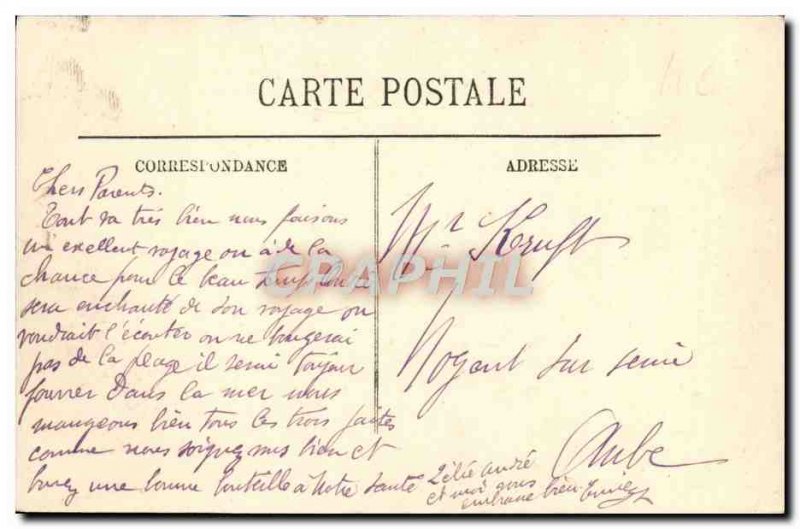 CARTE POSTALE
CORRESPONDANCE
ADRESSE
Chers Parents.
Tout va très bien nous faisons
un exellent voyage on à de la
chance pour le beau temps
sera enchanté de son voyage on
voudrait l'écouter on ne bougerai
pas de la plage il serai toujour
fourrer Dans la mer nous
mangeons bien tous les trois faites
comme nous soignez vous bien et
buvez une bonne bouteille à notre santé
André
et moi vous
embrasse bien
Mr Kruft
Nogent sur seine
Aube
CPAPHIL